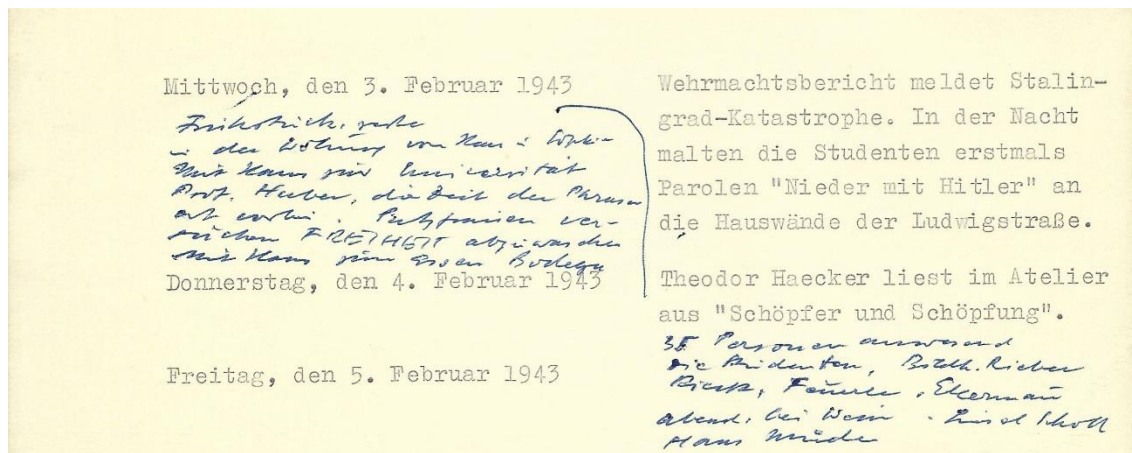 Mittwoch, den 3. Februar 1943
Frühstück,
in der Wohnung von Hans u Sophie
Mit Hans zur Universität
Prof. Huber, die Zeit der Phrasen
ist vorbei. Putzfrauen ver-
suchen FREIHEIT abzuwaschen
Mit Hans zum Essen Bodega
Donnerstag, den 4. Februar 1943
Freitag, den 5. Februar 1943
Wehrmachtsbericht meldet Stalin-
grad-Katastrophe. In der Nacht
malten die Studenten erstmals
Parolen "Nieder mit Hitler" an
die Hauswände der Ludwigstraße.
Theodor Haecker liest im Atelier
aus "Schöpfer und Schöpfung".
35 Personen anwesend
die Studenten, Rieber
Feuerle,
abend. bei Wein - Scholl
Hans müde